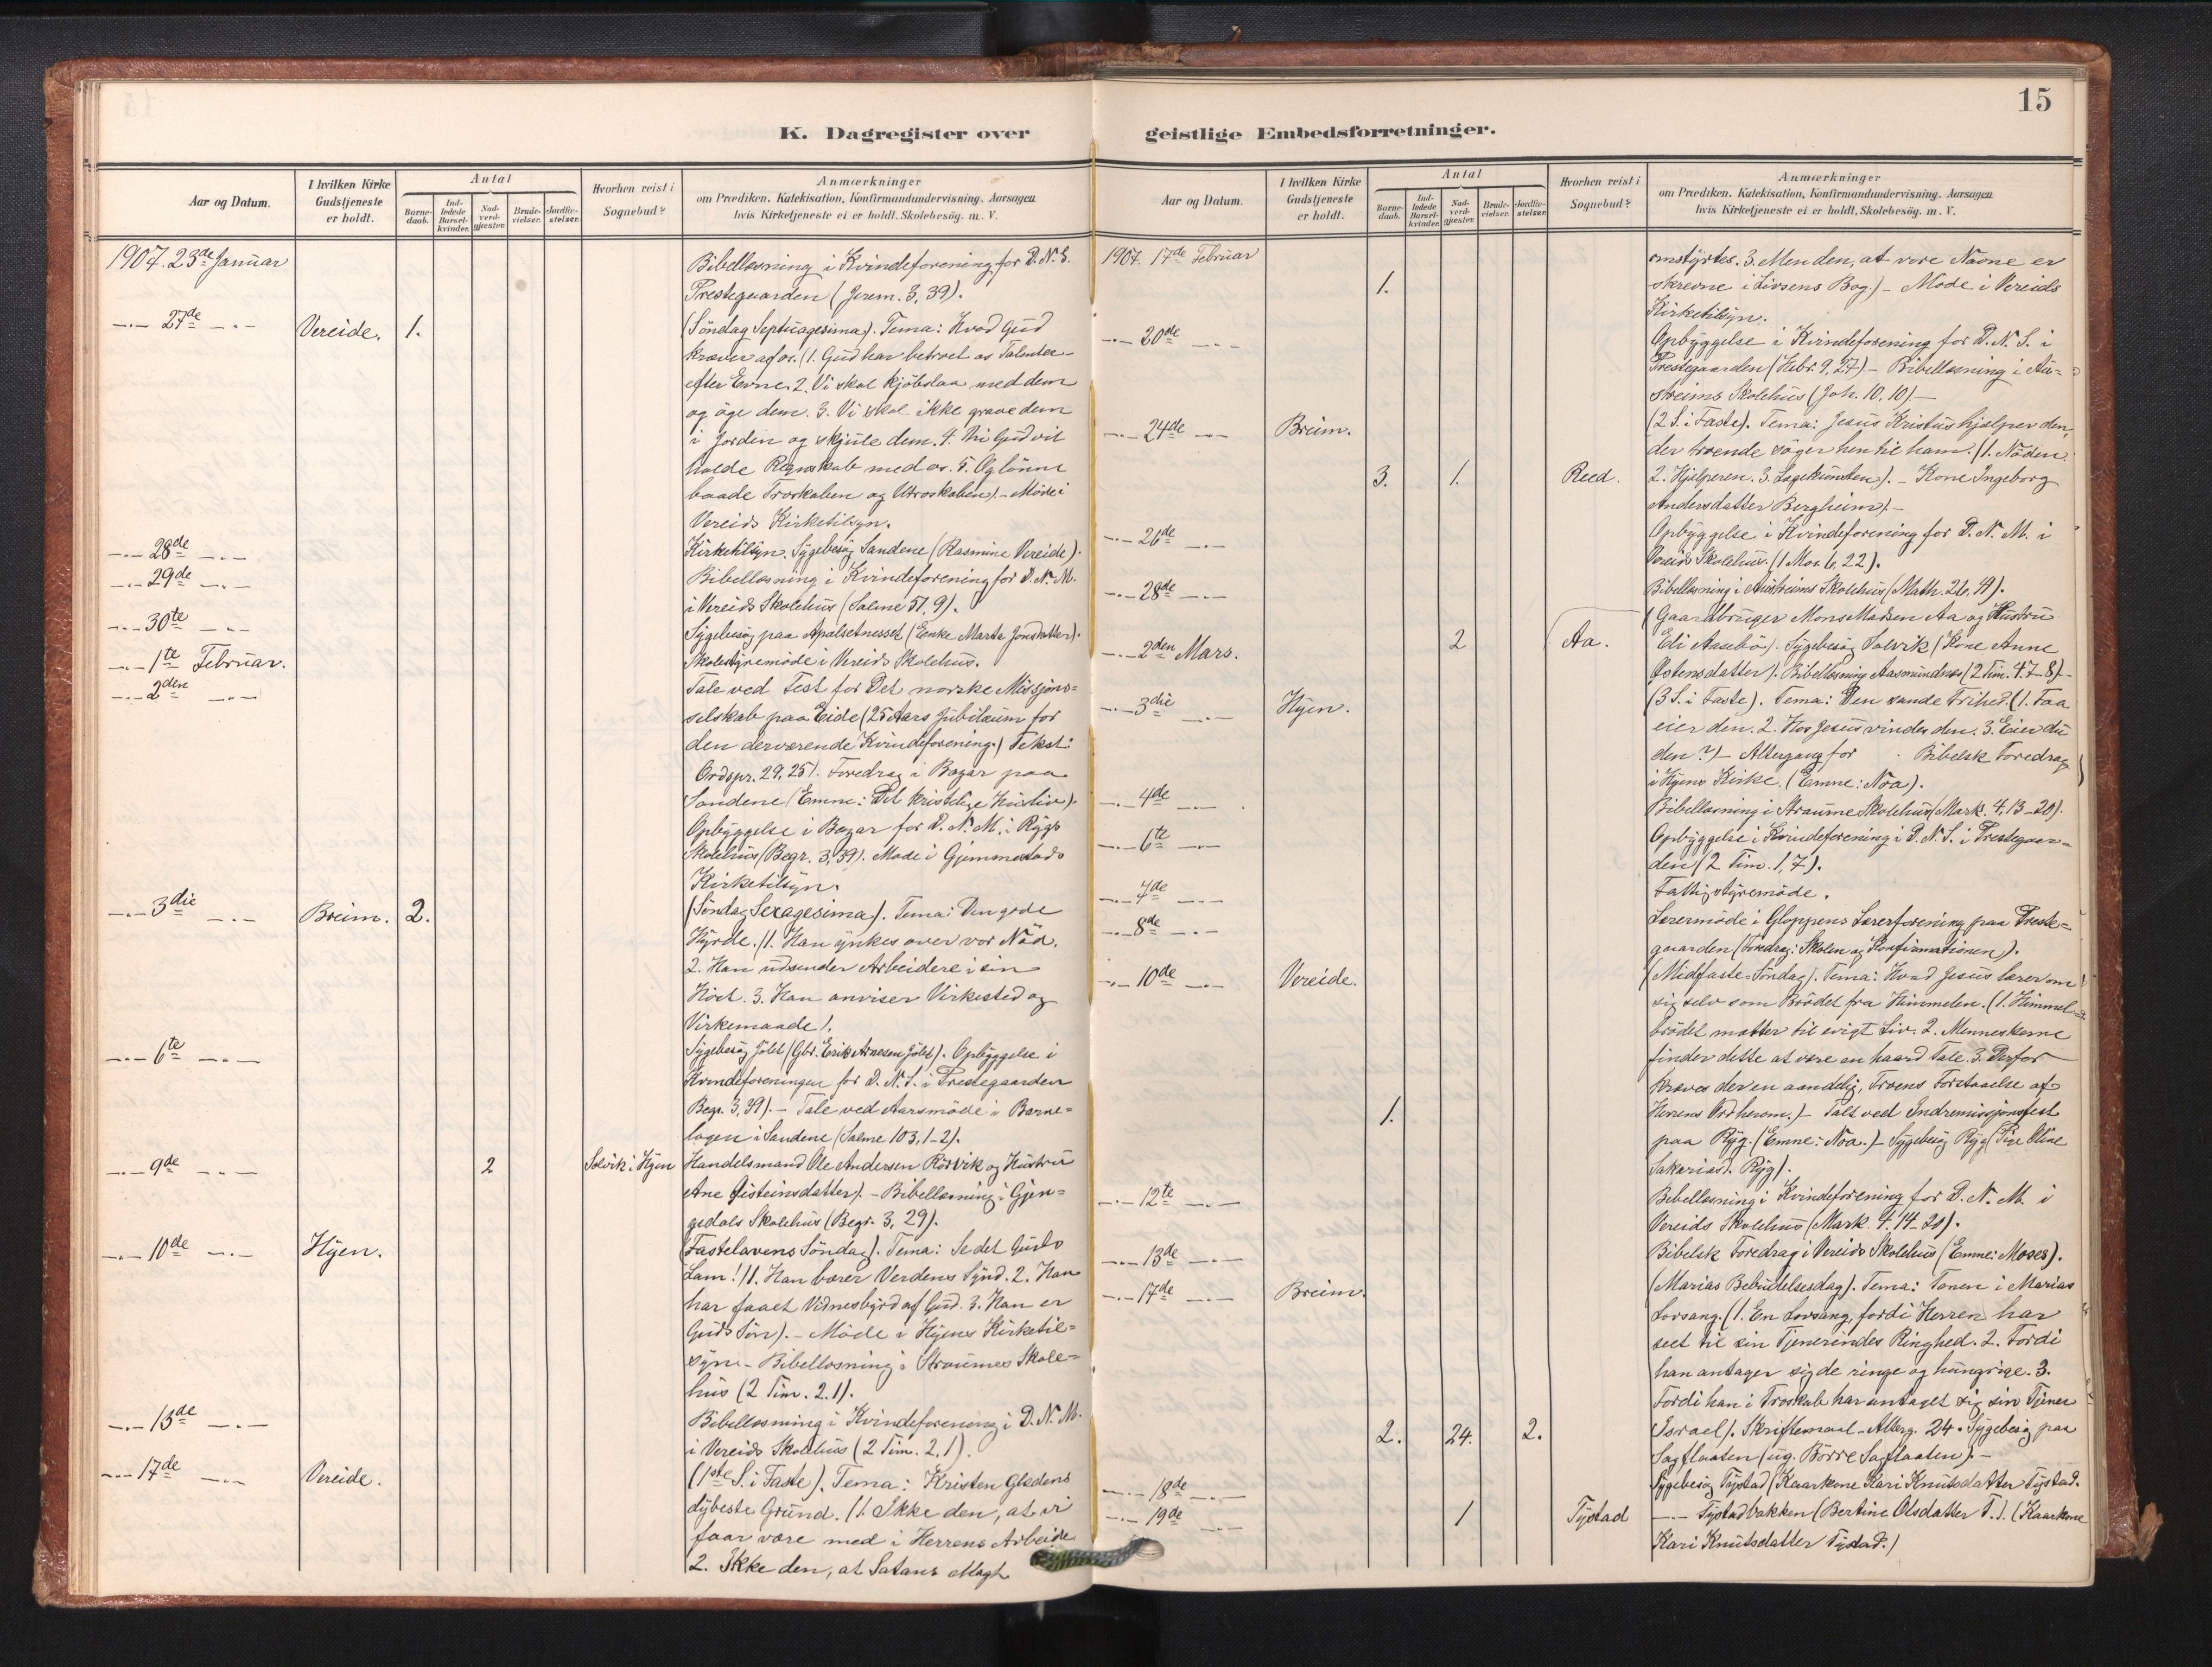 15
K. Dagregister over
geistlige Embedsforretninger.
Aar og Datum.
I hvilken Kirke
Gudstjeneste
er holdt.
Antal
Barne-
daab.
Ind-
ledede
Barsel-
kvinder.
Nad-
verd-
gjæster.
Brude-
vielser.
Jordfæ-
stelser.
Hvorhen reist i
Sognebud?
Anmærkninger
om Prædiken, Katekisation, Konfirmandundervisning, Aarsagen
hvis Kirketjeneste ei er holdt, Skolebesøg. m. V.
1907. 23de Januar
Bibellæsning i Kvindeforening for D. N. S.
Prestegaarden (Jerem. 3, 39).
-"- 27de -"- Vereide. 1. (Söndag Septuagesima). Tema: Hvad Gud
kræver af os. (1. Gud har betroet os Talenter
efter Evne. 2. Vi skal kjöbslaa med dem
og öge dem. 3. Vi skal ikke grave dem
i Jorden og skjule dem. 4. Thi Gud vil
holde Regnskab med os. 5. Og lönne
baade Troskaben og Utroskaben). - Möde i
Vereids Kirketilsyn.
-"- 28de -"- Kirketilsyn. Sygebesög Sandene (Rasmine Vereide).
-"- 29de -"- Bibellæsning i Kvindeforening for D. N. M.
i Vereids Skolehus (Salme 51, 9).
-"- 30te -"- Sygebesög paa Apalsetnesset (Enke Marta Jonsdatter).
-"- 1te Februar. Skolestyremöde i Vereids Skolehus.
-"- 2den -"- Tale ved Fest for Det norske Missjons=
selskab paa Eide (25 Aars Jubilæum for
den derværende Kvindeforening.) Tekst:
Ordspr. 29, 25). Foredrag i Bazar paa
Sandene (Emne: Det kristelige Husliv).
Opbyggelse i Bazar for D. N. M. i Rygs
Skolehus (Begr. 3, 39). Möde i Gjemmestads
Kirketilsyn.
-"- 3die -"- Breim. 2. (Söndag Sexagesima). Tema: Den gode
Hyrde. (1. Han ynkes over vor Nöd.
2. Han udsender Arbeidere i sin
Höst. 3. Han anviser Virkested og
Virkemaade).
-"- 6te -"- Sygebesög Jölet (Gbr. Erik Arnesen Jölet). Opbyggelse i
Kvindeforeningen for D. N. S. i Prestegaarden
Begr. 3, 39). - Tale ved Aarsmöde i Barne=
lagen i Sandene (Salme 103, 1-2).
-"- 9de -"- 2 Solvik i Hyen Handelsmand Ole Andersen Rörvik og Hustru
Ane Öisteinsdatter). - Bibellæsning i Gjen=
gedals Skolehus (Begr. 3, 29).
-"- 10de -"- Hyen. (Fastelavens Söndag). Tema: Se det Guds
Lam! (1. Han bærer Verdens Synd. 2. Han
har faaet Vidnesbyrd af Gud. 3. Han er
Guds Sön). - Möde i Hyens Kirketil=
syn. - Bibellæsning i Straumes Skole=
hus (2 Tim. 2. 1).
-"- 13de -"- Bibellæsning i Kvindeforening i D. N. M.
i Vereids Skolehus (2 Tim. 2, 1).
-"- 17de -"- Vereide. (1ste S. i Faste). Tema: Kristen Glædens
dybeste Grund. (1. Ikke den, at vi
faar være med i Herrens Arbeide
2. Ikke den, at Satans Magt
Aar og Datum.
I hvilken Kirke
Gudstjeneste
er holdt.
Antal
Barne-
daab.
Ind-
ledede
Barsel-
kvinder.
Nad-
verd-
gjæster.
Brude-
vielser.
Jordfæ-
stelser.
Hvorhen reist i
Sognebud?
Anmærkninger
om Prædiken, Katekisation, Konfirmandundervisning, Aarsagen
hvis Kirketjeneste ei er holdt, Skolebesøg. m. V.
1907. 17de Februar omstyrtes. 3. Men den, at vore Navne er
1. skrevne i Livsens Bog) - Möde i Vereids
Kirketilsyn.
-"- 20de -"- Opbyggelse i Kvindeforening for D. N. S. i
Prestegaarden (Hebr. 9, 27). - Bibellæsning i Au=
streims Skolehus (Joh. 10, 10). -
-"- 24de -"- Breim. (2 S. i Faste). Tema: Jesus Kristus hjælper den,
der troende söger hen til ham. (1. Nöden.
3. 1. Reed. 2. Hjælperen. 3. Lægekunsten). - Kone Ingeborg
Andersdatter Bergheim). -
-"- 26de -"- Opbyggelse i Kvindeforening for D. N. M. i
Vereids Skolehus. (1 Mos. 6, 22).
-"- 28de -"- Bibellæsning i Austreims Skolehus (Math. 26, 41).
(Gaardbruger Mons Madsen Aa og Hustru
-"- 2den Mars. 2 Aa. Eli Aasebö). Sygebesög Solvik (Kone Anne
Östensdatter). Bibellæsning Aasmundnes (2 Tim. 4. 7-8). -
-"- 3die -"- Hyen. (3 S. i Faste). Tema: Den sande Frihed. (1. Faa
eier den. 2. Hos Jesus vindes den. 3. Eier du
den?) - Altergang for Bibelsk Foredrag
i Hyens Kirke. (Emne: Noa).
-"- 4de -"- Bibellæsning i Straume Skolehus (Mark. 4, 13-20).
-"- 6te -"- Opbyggelse i Kvindeforening i D. N. S. i Prestegaar=
den (2 Tim. 1, 7).
-"- 7de -"- Fattigstyremöde.
-"- 8de -"- Lærermöde i Gloppens Lærerforening paa Preste=
gaarden (Foredrag: Skolen og Konfirmationen).
-"- 10de -"- Vereide. (Midfaste-Söndag). Tema: Hvad Jesus lærer om
sig selv som Brödet fra Himmelen. (1. Himmel=
brödet mætter til evigt Liv. 2. Menneskene
finder dette at være en haard Tale. 3. Derfor
kræves der en aandelig, Troens Forstaaelse af
1. Herrens Ord herom.) - Tale ved Indremissjonsfest
paa Ryg. (Emne: Noa.) - Sygebesög Ryg (Pige Oline
Sakariasd. Ryg).
-"- 12te -"- Bibellæsning i Kvindeforening for D. N. M. i
Vereids Skolehus (Mark. 4. 14-20).
-"- 13de -"- Bibelsk Foredrag i Vereids Skolehus (Emne: Moses).
-"- 17de -"- Breim. (Marias Bebudelsesdag). Tema: Tonen i Marias
Lovsang. (1. En Lovsang, fordi Herren har
seet til sin Tjenerindes Ringhed. 2. Fordi
han antager sig de ringe og hungrige. 3.
Fordi han i Troskab har antaget sig sin Tjener
2. 24. 2. Israel). Skriftemaal - Alterg. 24. Sygebesög paa
Sagflaaten (ug. Börre Sagflaaten). -
-"- 18de -"- Sygebesög Tystad (Kaarkone Kari Knutsdatter Tystad.
-"- 19de -"- 1 Tystad -"- Tystadbakken (Bertine Olsdatter T.). (Kaarkone
Kari Knutsdatter Tystad.)